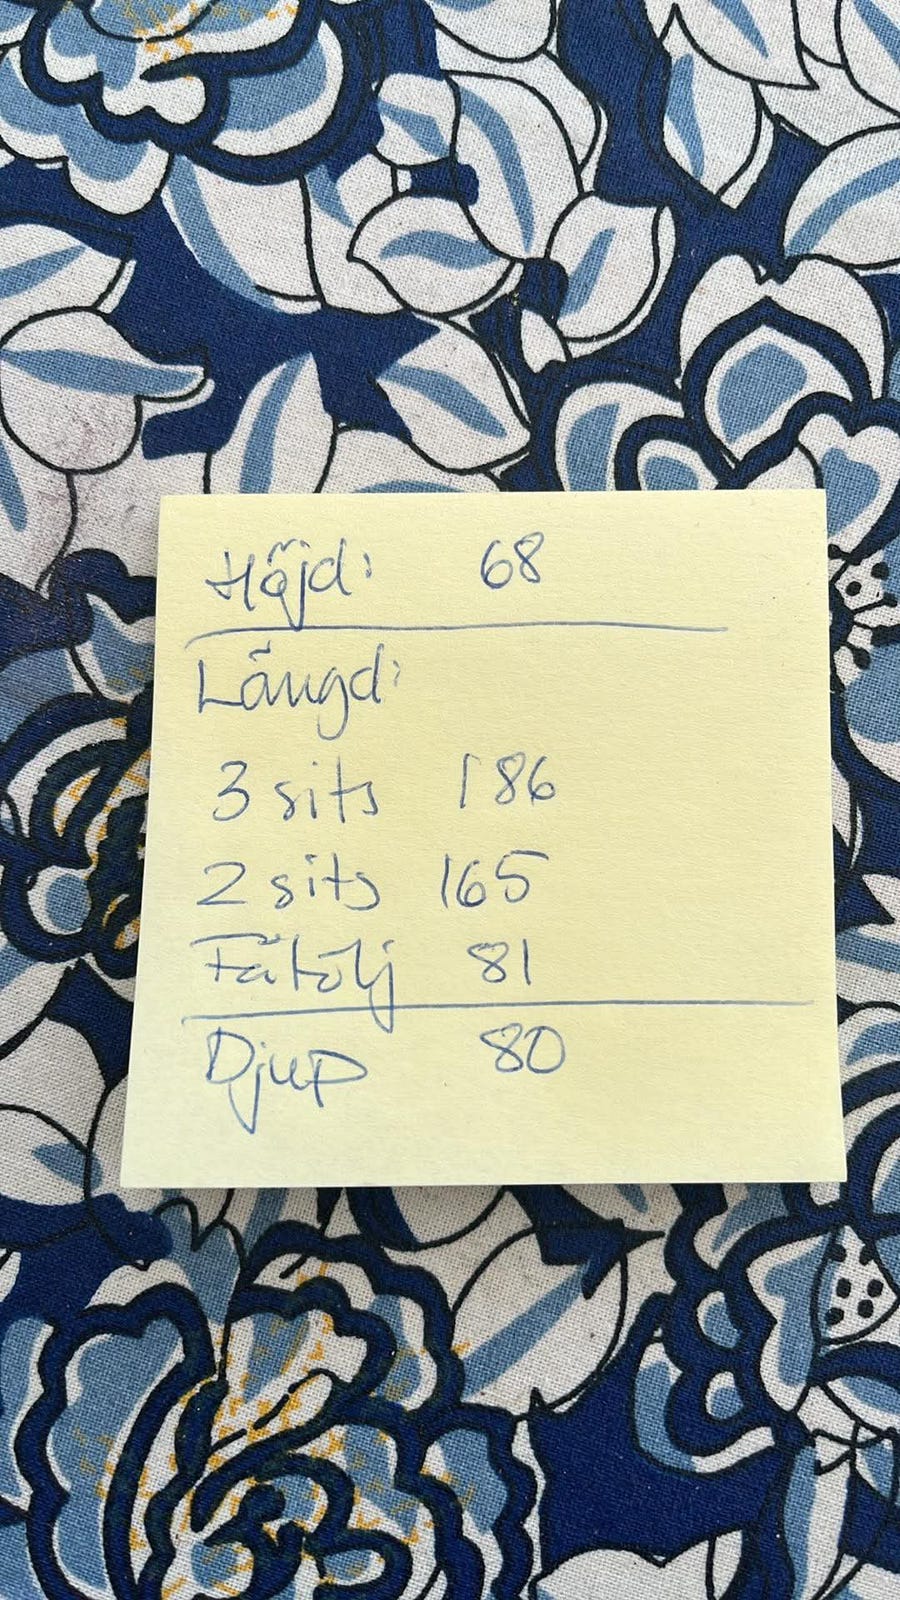 Höjd: 68
Längd:
3 sits 186
2 sits 165
Fåtölj 81
Djup 80